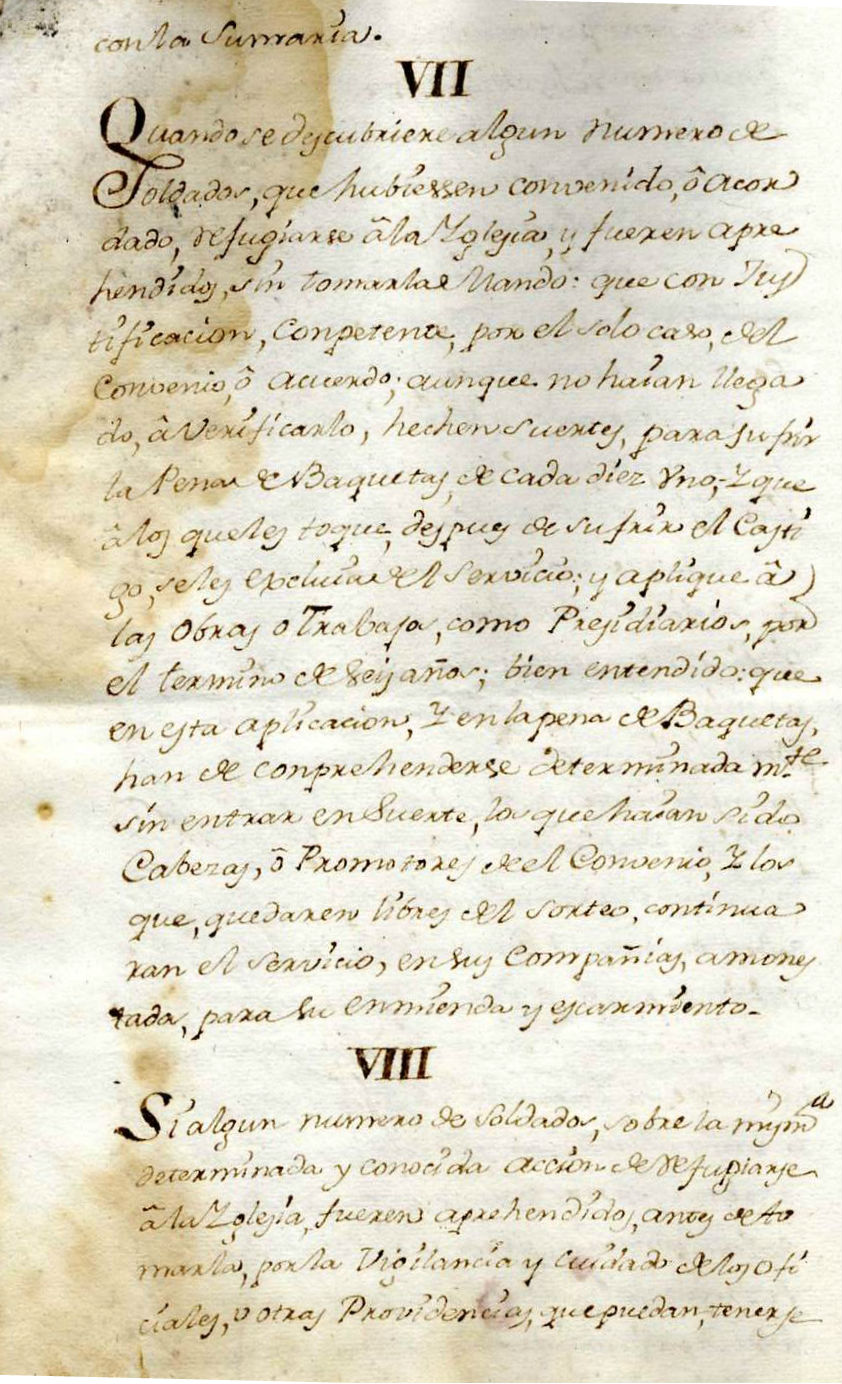 con la Sumaria.
VII
Quando se descubriere algun numero de
Soldados, que hubiessen convenido, ô acor
dado, refugiarse â la Yglesia, y fueren apre
hendidos, sin tomarla Mando: que con Jus
tificacion, Conpetente, por el solo caso, del
Convenio, ô acuerdo; aunque no haian llega
do, â verificarlo, hechen suertes, para sufrir
la Pena de Baquetas, de cada diez Vno, Y que
â los que les toque, despues de sufrir el Casti
go, se les excluia del servicio; y aplique â
las Obras o Trabajos, como Presidiarios, por
el termino de seis años; bien entendido: que
en esta aplicacion, Y en la pena de Baquetas,
han de conprehenderse determinada m.te
sin entrar en Suerte, los que haian sido
Cabezas, ô Promotores de el Convenio, Y los
que, quedaren libres del sorteo, continua
ran el servicio, en sus Compañias, amones
tada, para su enmienda y escarmiento.
VIII
Si algun numero de Soldados, sobre la mism.a
determinada y conocida accion de refugiarse
â la Yglesia, fueren aprehendidos, antes de to
marla, por la Vigilancia y cuidado de los ofi
ciales, v otras Providencias, que puedan, tenerse